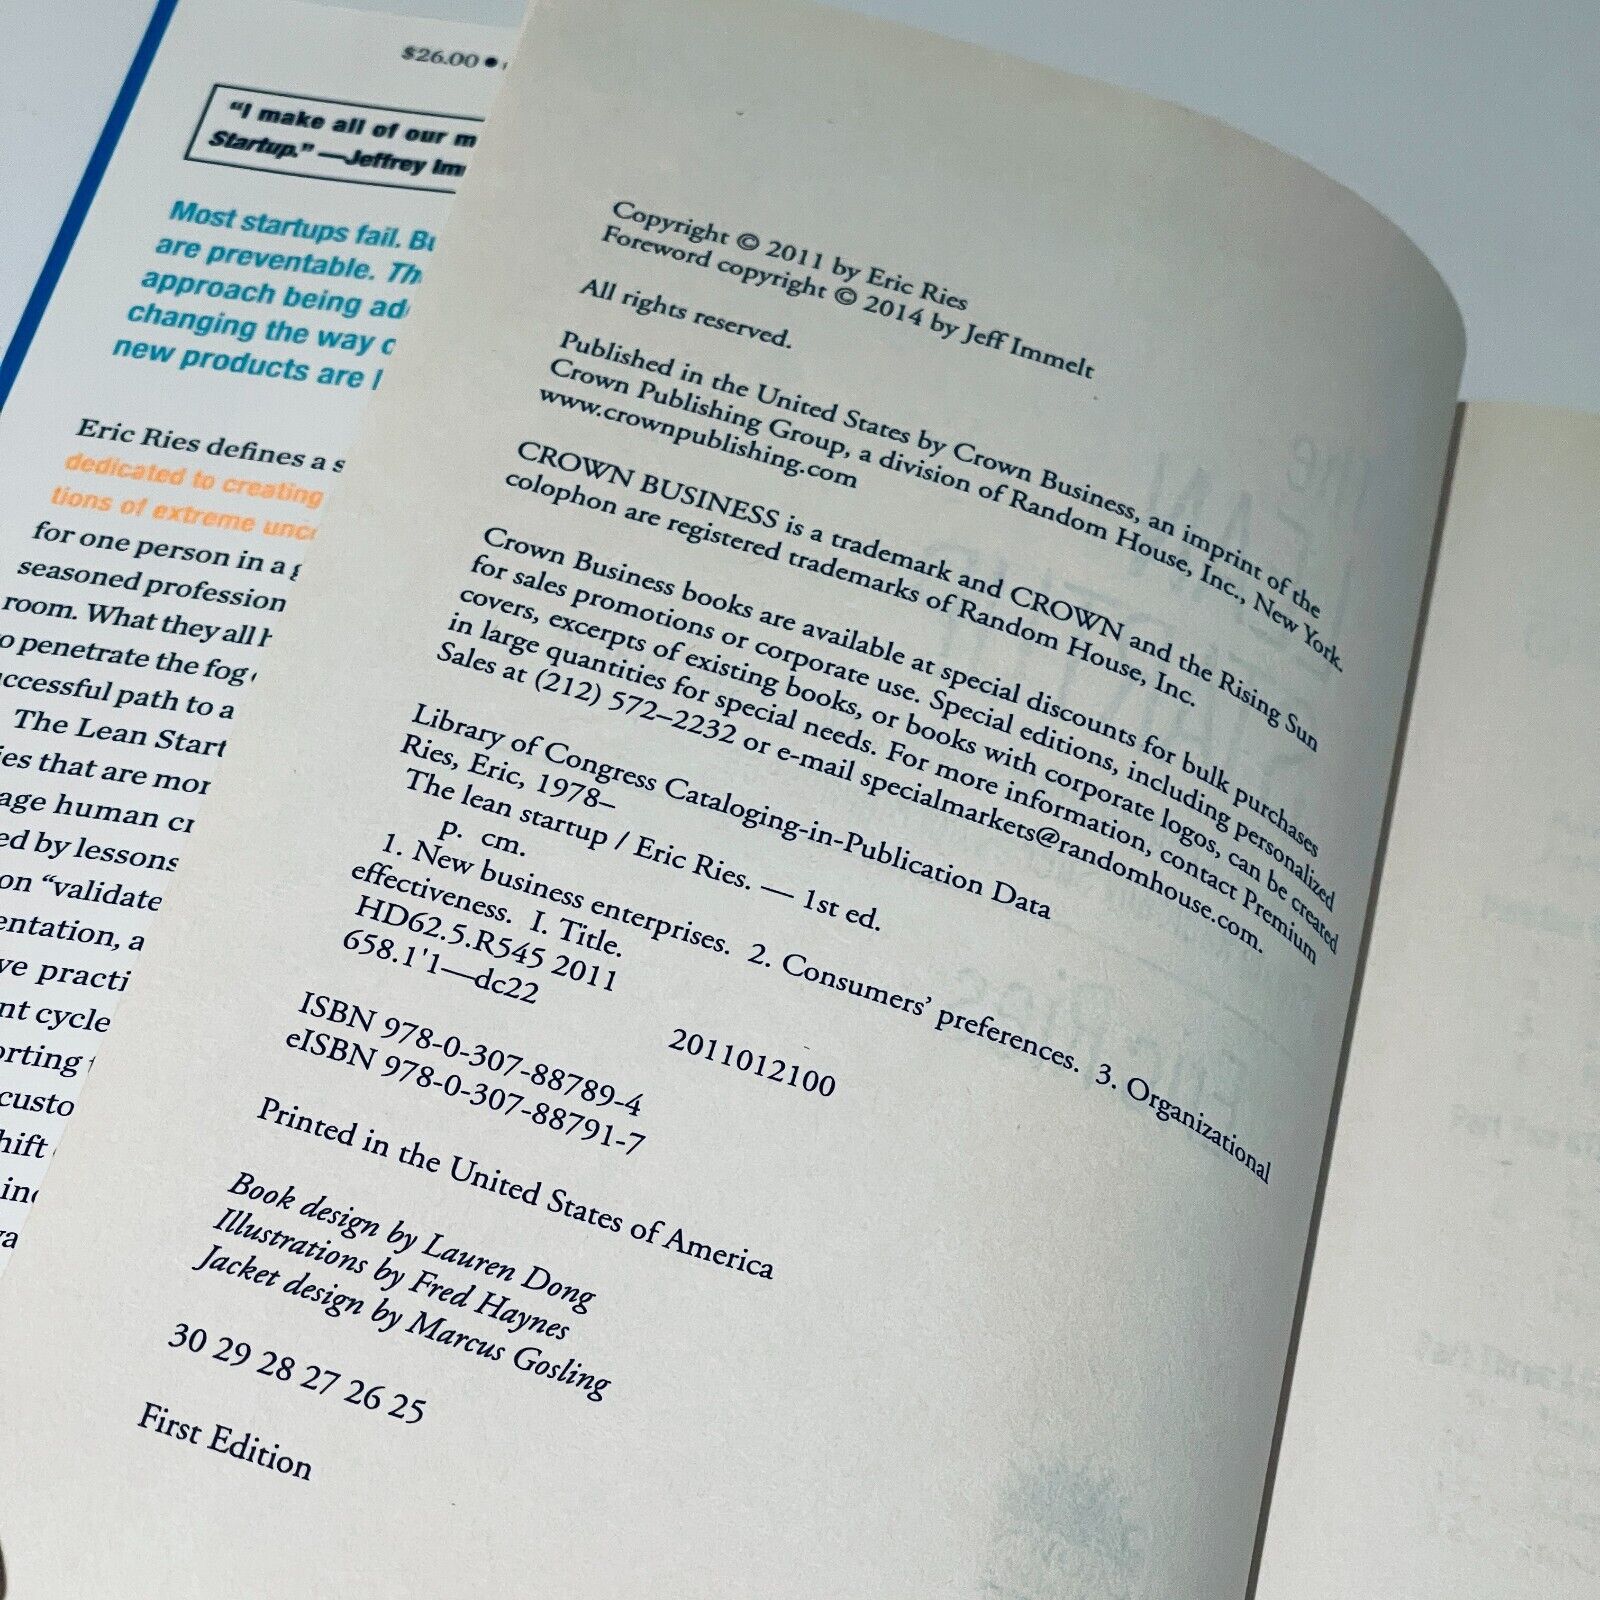 $26.00
“I make all of our
Startup.” —Jeffrey
Most startups fail.
are preventable.
approach being
changing the way
new products are
Eric Ries defines a
dedicated to creating
tions of extreme
for one person in a
seasoned
room. What they all
penetrate the fog
path to a
The Lean
that are
human
by lessons
on
a
cycle
Copyright © 2011 by Eric Ries
Foreword copyright © 2014 by Jeff Immelt
All rights reserved.
Published in the United States by Crown Business, an imprint of the
Crown Publishing Group, a division of Random House, Inc., New York.
www.crownpublishing.com
CROWN BUSINESS is a trademark and CROWN and the Rising Sun
colophon are registered trademarks of Random House, Inc.
Crown Business books are available at special discounts for bulk purchases
for sales promotions or corporate use. Special editions, including personalized
covers, excerpts of existing books, or books with corporate logos, can be created
in large quantities for special needs. For more information, contact Premium
Sales at (212) 572–2232 or e-mail specialmarkets@randomhouse.com.
Library of Congress Cataloging-in-Publication Data
Ries, Eric, 1978–
The lean startup / Eric Ries. — 1st ed.
p. cm.
1. New business enterprises. 2. Consumers’ preferences. 3. Organizational
effectiveness. I. Title.
HD62.5.R545 2011
658.1'1—dc22
2011012100
ISBN 978-0-307-88789-4
eISBN 978-0-307-88791-7
Printed in the United States of America
Book design by Lauren Dong
Illustrations by Fred Haynes
Jacket design by Marcus Gosling
30 29 28 27 26 25
First Edition